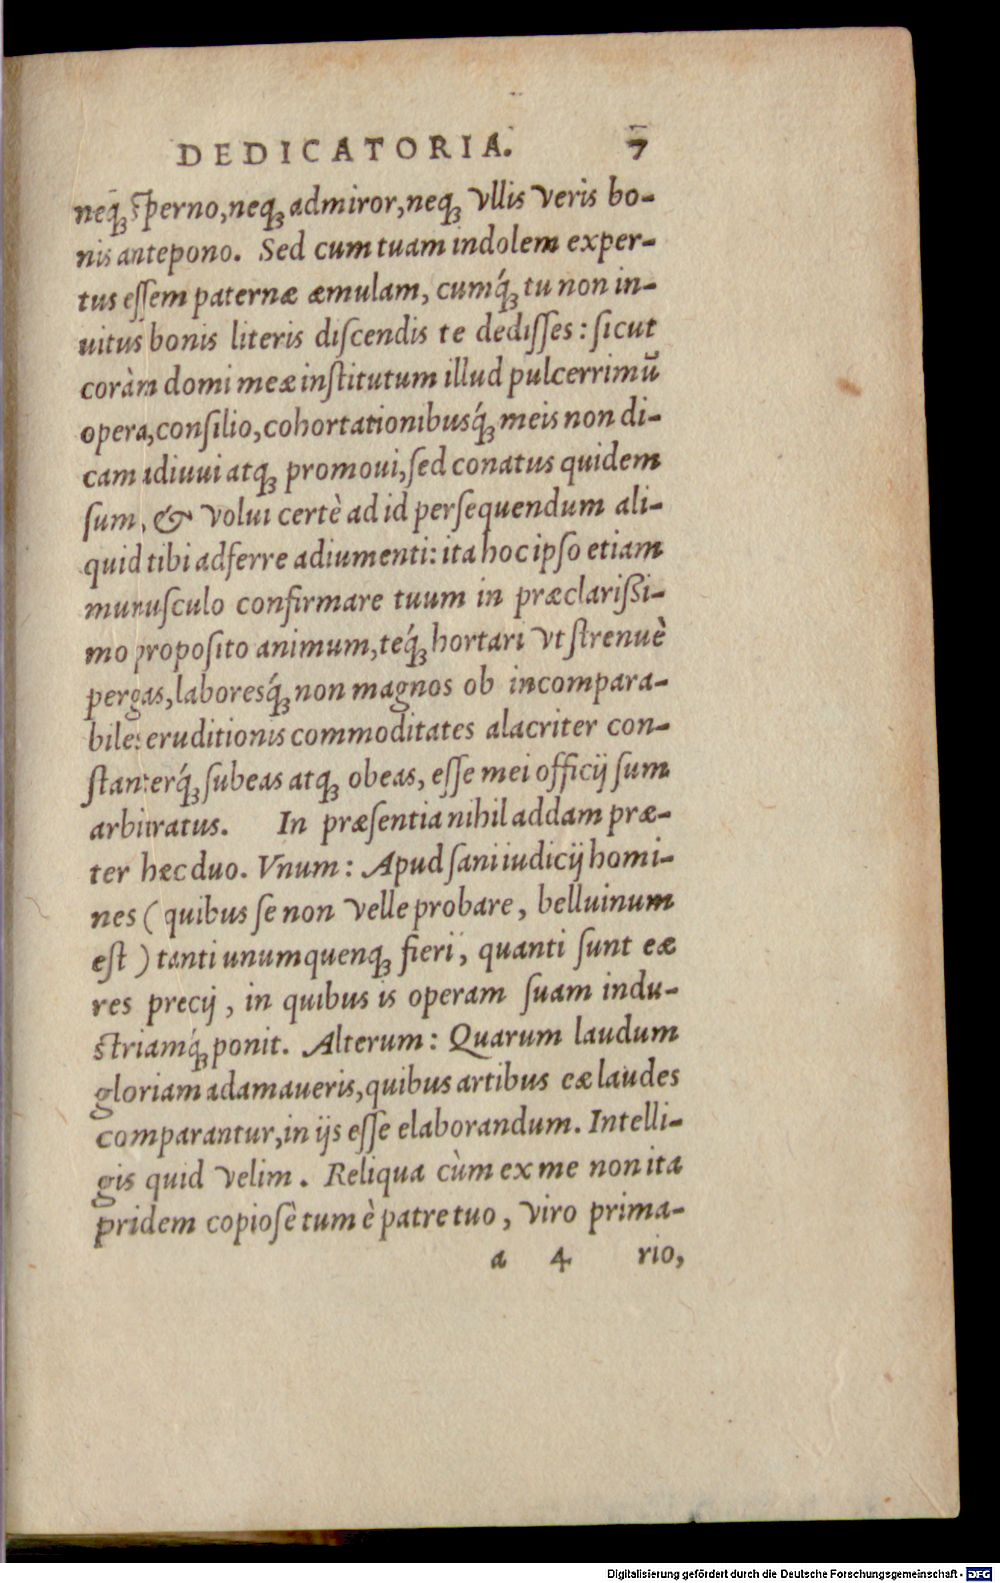 DEDICATORIA. 7
neq; ſperno, neq; admiror, neq; vllis veris bo-
nis antepono. Sed cum tuam indolem exper-
tus eſſem paternæ æmulam, cumq́; tu non in-
uitus bonis literis diſcendis te dediſſes: ſicut
coràm domi meæ inſtitutum illud pulcerrimū
opera, conſilio, cohortationibusq́; meis non di-
cam adiuui atq; promoui, ſed conatus quidem
ſum, & volui certè ad id perſequendum ali-
quid tibi adferre adiumenti: ita hoc ipſo etiam
munuſculo confirmare tuum in præclariſſi-
mo propoſito animum, teq́; hortari vt ſtrenuè
pergas, laboresq́; non magnos ob incompara-
biles eruditionis commoditates alacriter con-
ſtanterq́; ſubeas atq; obeas, eſſe mei officij ſum
arbitratus. In præſentia nihil addam præ-
ter hæc duo. Vnum: Apud ſani iudicij homi-
nes (quibus ſe non velle probare, belluinum
eſt) tanti unumquenq; fieri, quanti ſunt eæ
res precij, in quibus is operam ſuam indu-
ſtriamq́; ponit. Alterum: Quarum laudum
gloriam adamaueris, quibus artibus eæ laudes
comparantur, in ijs eſſe elaborandum. Intelli-
gis quid velim. Reliqua cùm ex me non ita
pridem copioſè tum è patre tuo, viro prima-
a 4 rio,
Digitalisierung gefördert durch die Deutsche Forschungsgemeinschaft - DFG